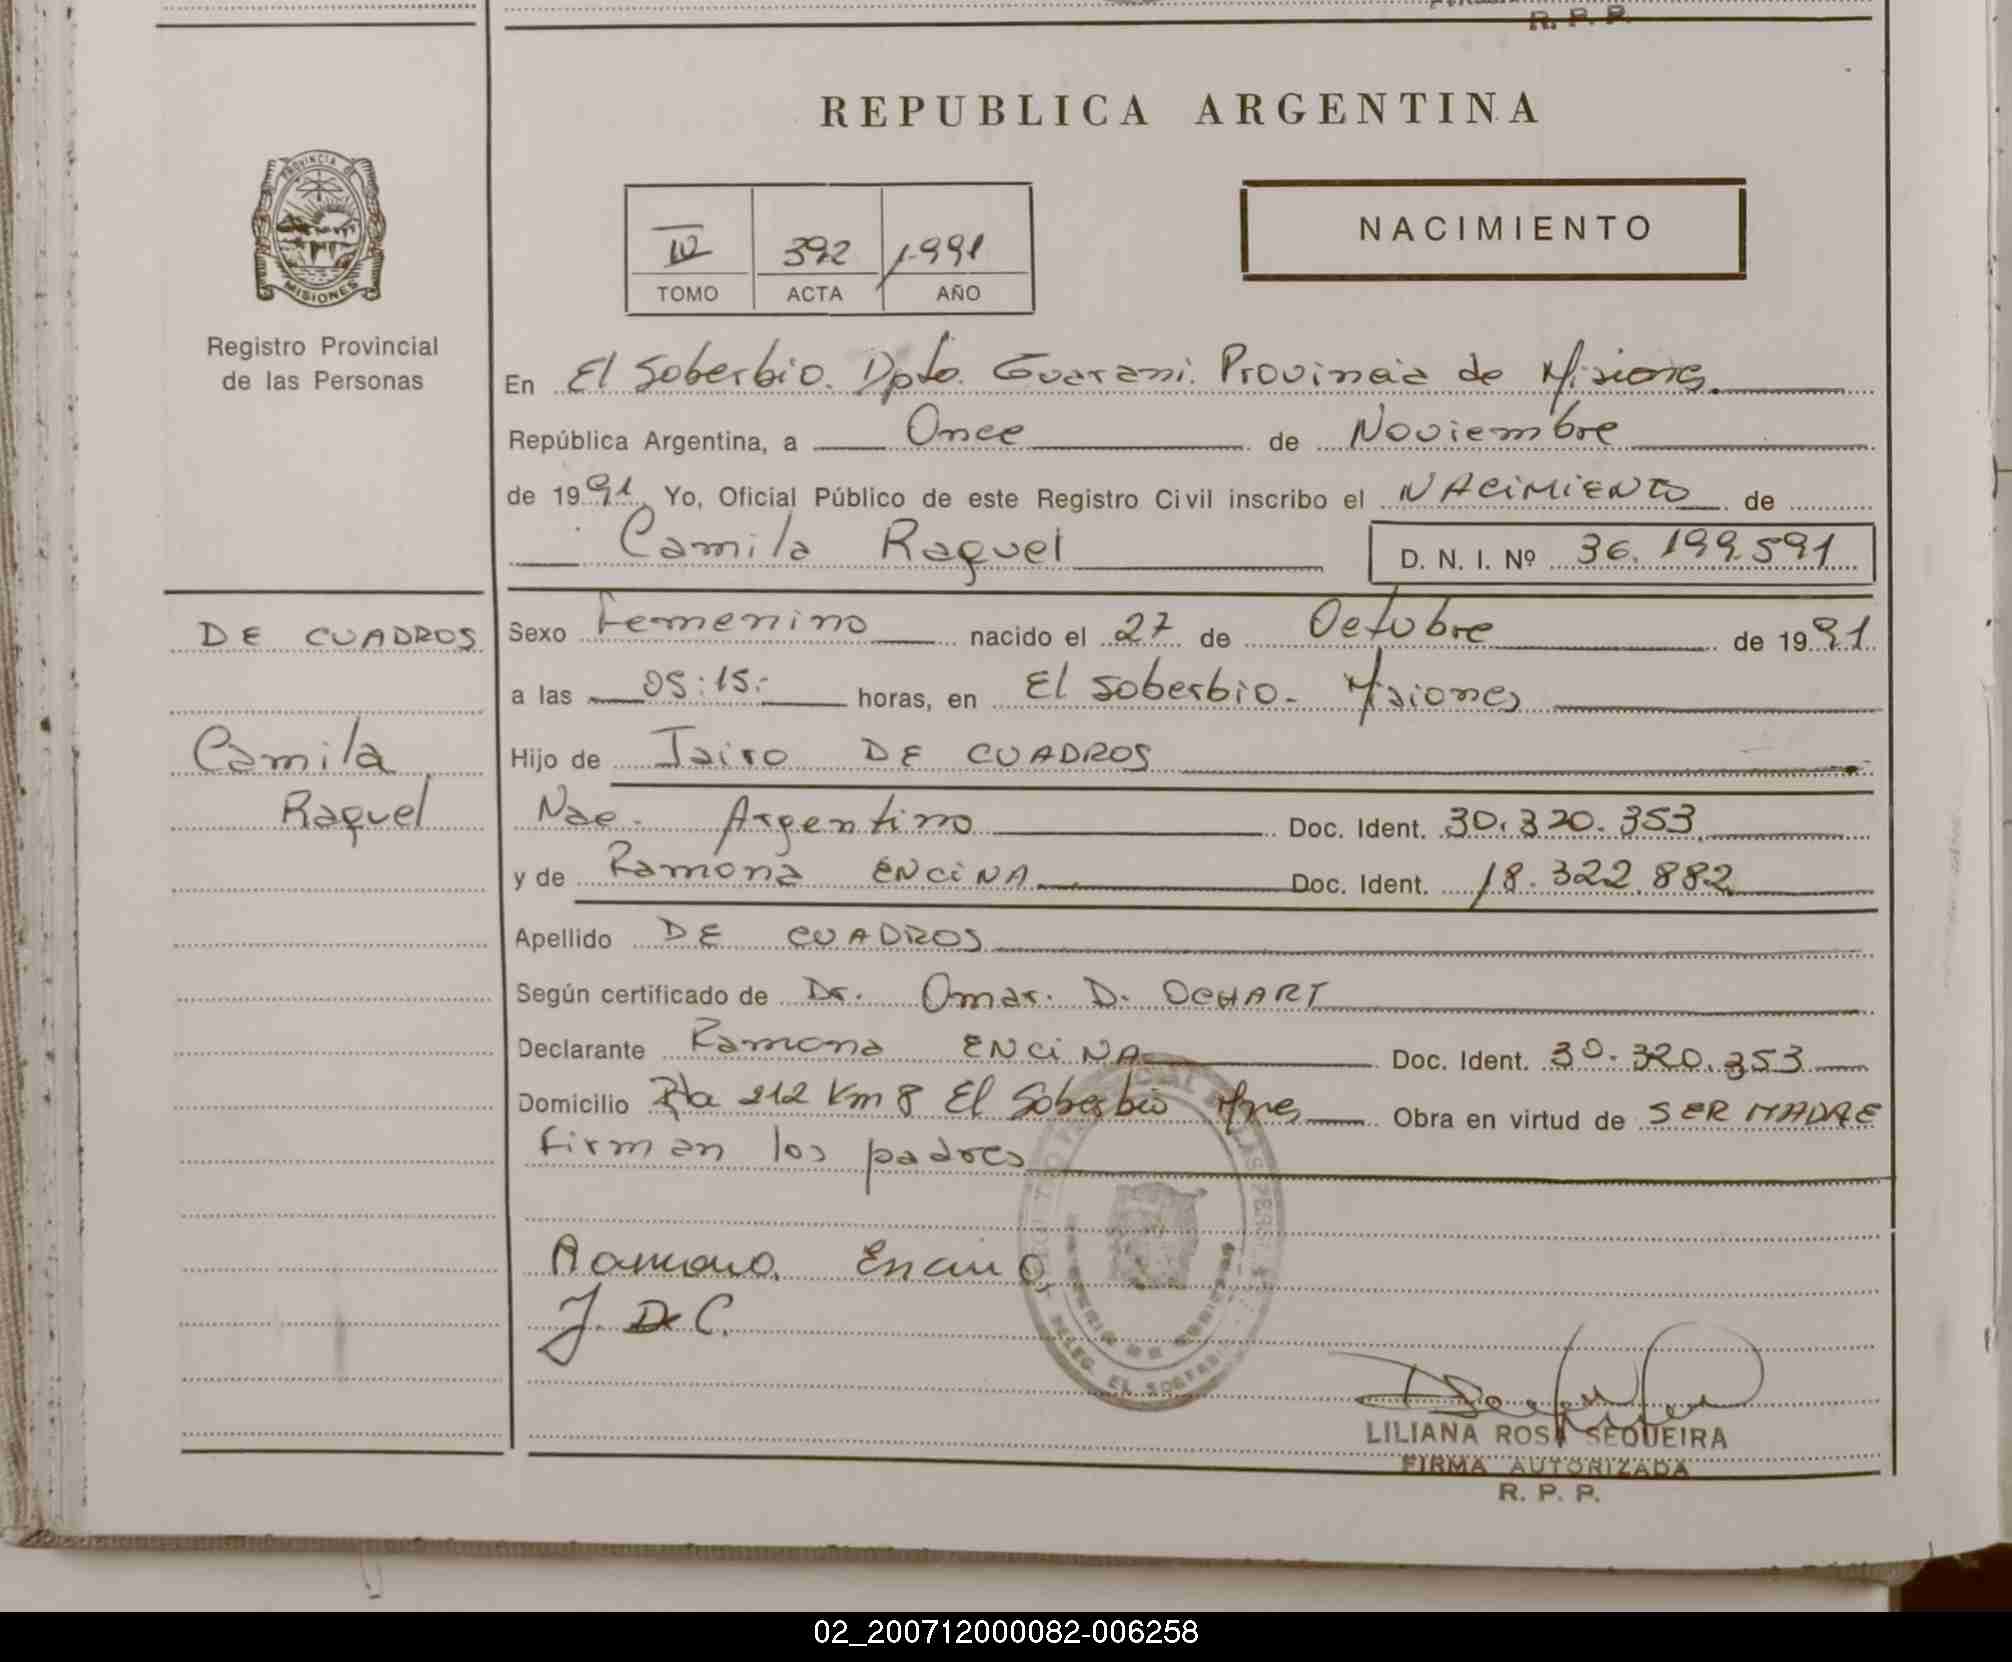 R. P. P.
REPUBLICA ARGENTINA
PROVINCIA DE
MISIONES
Registro Provincial
de las Personas
IV 392 1.991
TOMO ACTA AÑO
NACIMIENTO
En El Soberbio. Dpto. Guarani. Provincia de Misiones.
República Argentina, a Once de Noviembre
de 1991 Yo, Oficial Público de este Registro Civil inscribo el NACIMIENTO de
Camila Raquel D. N. I. Nº 36.199.591
DE CUADROS
Camila
Raquel
Sexo Femenino nacido el 27 de Octubre de 1991
a las 05:15.- horas, en El Soberbio.- Misiones
Hijo de Jairo DE CUADROS
Nac. Argentino Doc. Ident. 30.320.353
y de Ramona ENCINA Doc. Ident. 18.322.882
Apellido DE CUADROS
Según certificado de Dr. Omar. D. OCHART
Declarante Ramona ENCINA Doc. Ident. 30.320.353
Domicilio Rta 212 Km 8 El Soberbio Mnes Obra en virtud de SER MADRE
Firman los padres
Ramona Encina
J. D C.
LILIANA ROSA SEQUEIRA
FIRMA AUTORIZADA
R. P. P.
02_200712000082-006258